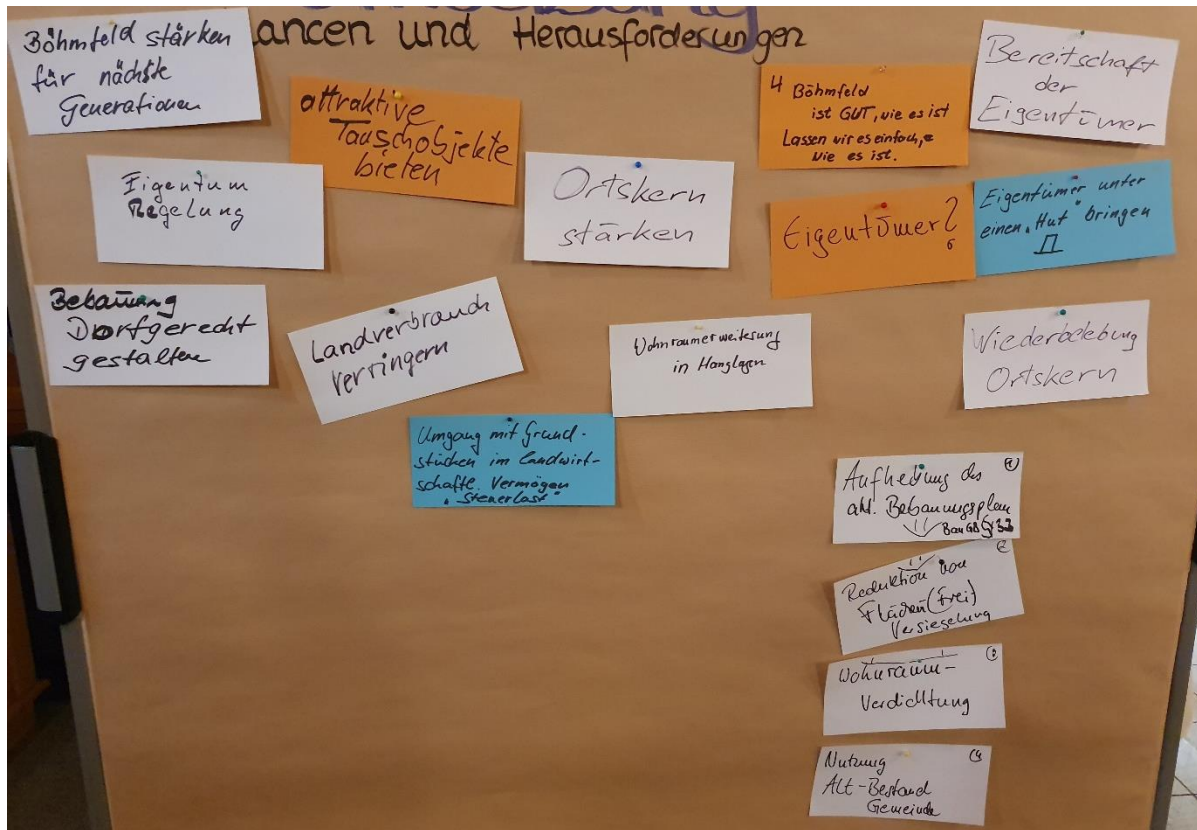 ancen und Herausforderungen
Böhmfeld stärken
für nächste
Generationen
attraktive
Tauschobjekte
bieten
4 Böhmfeld
ist GUT, wie es ist
Lassen wir es einfach,
wie es ist.
Bereitschaft
der
Eigentümer
Eigentum
Regelung
Ortskern
stärken
Eigentümer?
Eigentümer unter
einen „Hut" bringen
Bebauung
Dorfgerecht
gestalten
Landverbrauch
verringern
Wohnraumerweiterung
in Hanglagen
Wiederbelebung
Ortskern
Umgang mit Grund-
stücken im landwirt-
schaftl. Vermögen
„Steuerlast"
Aufhebung des ①
akt. Bebauungsplan
BauGB § 33
Reduktion von
Flächen (Frei)
Versiegelung
Wohnraum- ③
Verdichtung
Nutzung ④
Alt-Bestand
Gemeinde